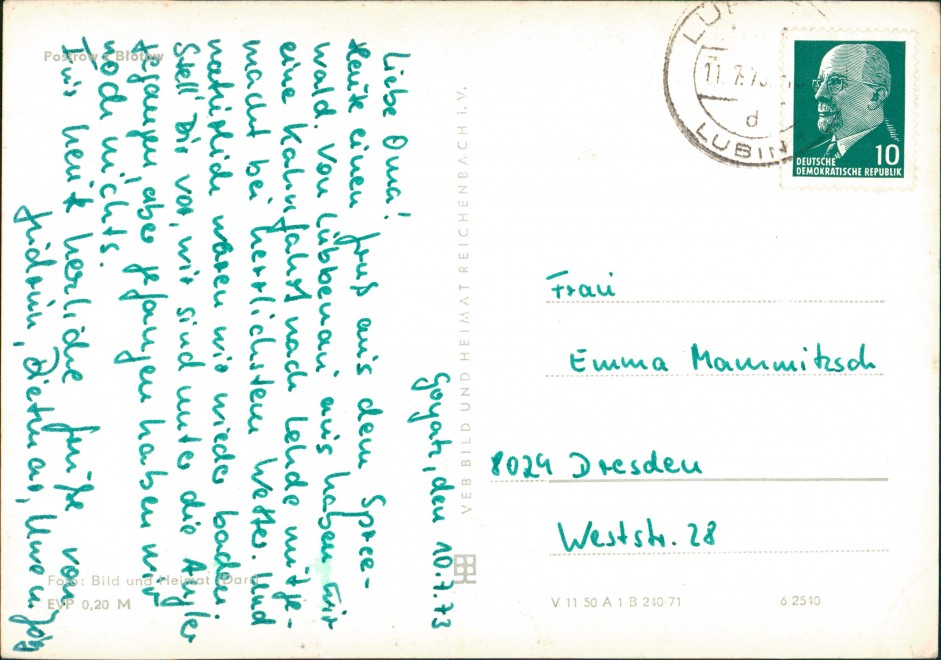 Goyatz, den 10.7.73
Liebe Oma!
Heute einen Gruß aus dem Spree-
wald. Von Lübbenau aus haben wir
eine Kahnfahrt nach Lehde mitge-
macht bei herrlichstem Wetter. Und
natürlich waren wir wieder baden.
Stell' Dir vor, wir sind unter die Angler
gegangen, aber gefangen haben wir
noch nichts.
Für heute herzliche Grüße von
Gudrun, Dietmar, Uwe u. Jörg
Postrow z Błotow
Foto: Bild und Heimat (Darr)
EVP 0,20 M
VEB BILD UND HEIMAT REICHENBACH i. V.
11.7.73
d
LUBIN
DEUTSCHE
DEMOKRATISCHE REPUBLIK
10
Frau
Emma Mammitzsch
8029 Dresden
Weststr. 28
V 11 50 A 1 B 240/71
6 2540